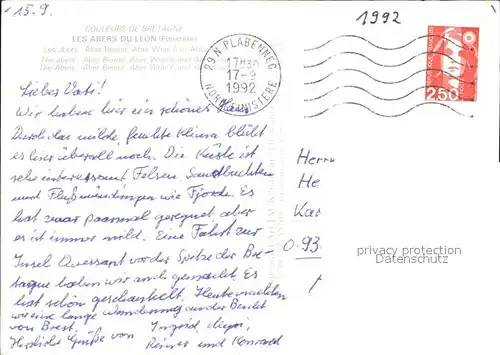 15.9.
1992
COULEURS DE BRETAGNE
LES ABERS DU LEON (Finistère)
Les abers : Aber Benoit, Aber Wrac'h et Aber
The abers : Aber Benoit, Aber Wrac'h and
Die Abers : Aber Benoit, Aber Wrac'h und
29 N. PLABENNEC
17H30
17-9
1992
NORD FINISTERE
2,50
Lieber Vati!
Wir haben hier ein schönes Haus
Durch das milde, feuchte Klima blüht
es hier überall noch. Die Küste ist
sehr interessant Felsen, Sandbuchten
und Flußmündungen wie Fjorde. Es
hat zwar paarmal geregnet, aber
es ist immer mild. Eine Fahrt zur
Insel Quessant vor der Spitze der Bre-
tagne haben wir auch gemacht. Es
hat schön geschaukelt. Heute machten
wir eine lange Wanderung an der Bucht
von Brest.
Herzliche Grüße von Ingrid,
Reiner und Konrad
Herrn
He
Kar
0-93
privacy protection
Datenschutz